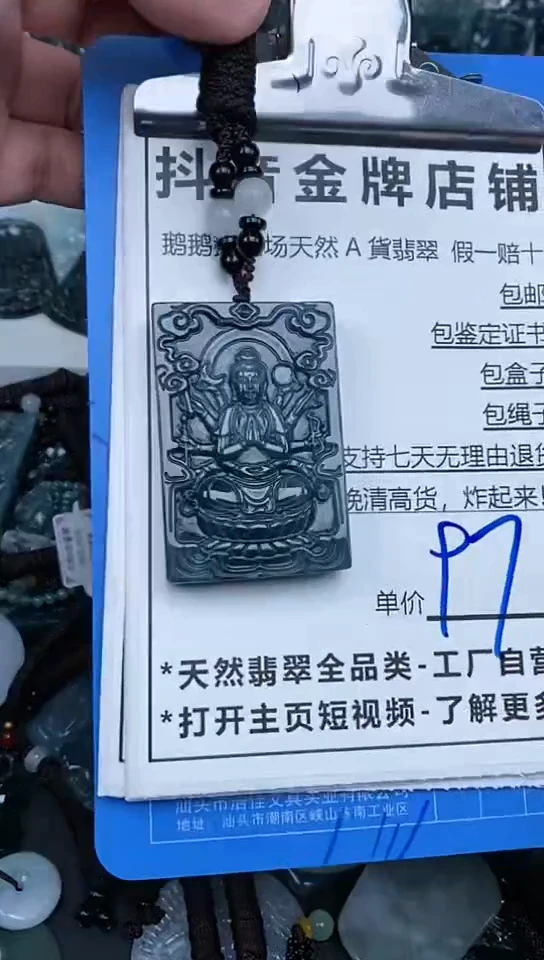 抖音金牌店铺
鹅鹅 场天然 A 貨翡翠 假一赔十
包邮
包鉴定证书
包盒子
包绳子
支持七天无理由退货
晚清高货，炸起来！
单价
*天然翡翠全品类-工厂自营
*打开主页短视频-了解更多
汕头市洁佳文具实业有限公司
地址 汕头市潮南区峡山 南工业区